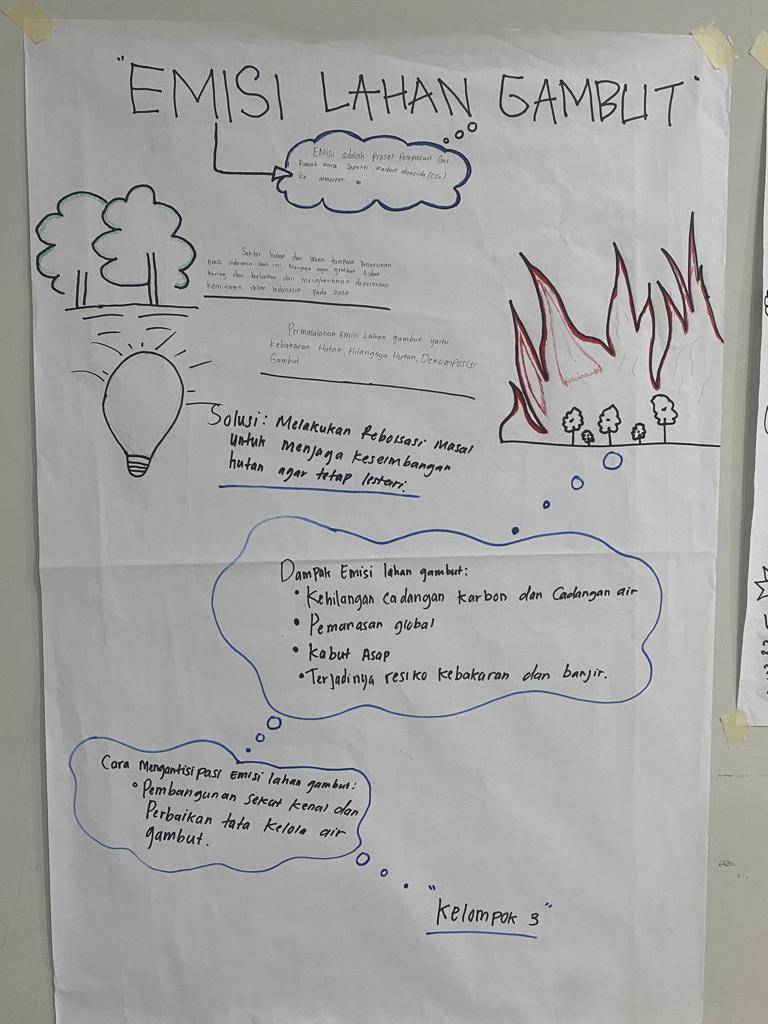 "EMISI LAHAN GAMBUT"
EMisi adalah Proses Pelepasan Gas
Rumah Kaca Seperti Karbon dioksida (CO₂)
Ke atmosfer.
Sektor hutan dan lahan tumpuan Penurunan
Emisi Indonesia saat ini. Menjaga agar gambut tidak
kering dan terbakar dan menghentikan deforestasi
komitmen iklim Indonesia Pada 2030
Permasalahan Emisi Lahan gambut yaitu
Kebakaran Hutan, Hilangnya Hutan, Dekomposisi
Gambut.
Solusi: Melakukan Reboisasi Masal
untuk menjaga keseimbangan
hutan agar tetap lestari.
Dampak Emisi lahan gambut:
• Kehilangan cadangan karbon dan Cadangan air
• Pemanasan global
• Kabut Asap
• Terjadinya resiko kebakaran dan banjir.
Cara Mengantisipasi Emisi lahan gambut:
• Pembangunan sekat kenal dan
Perbaikan tata kelola air
gambut.
"Kelompok 3"